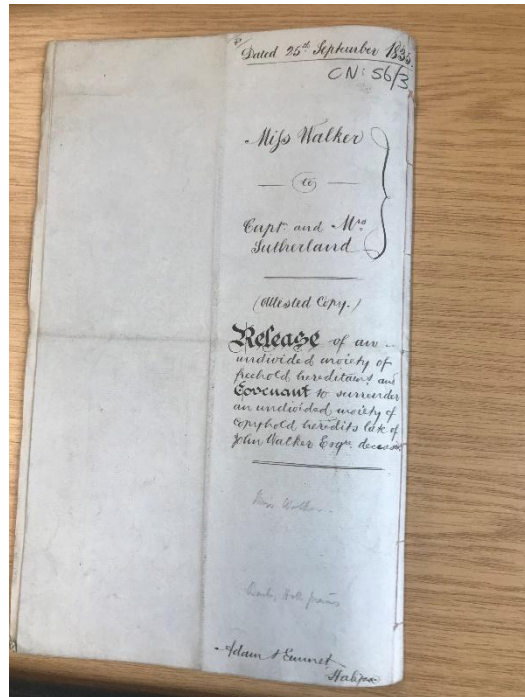 Dated 25th September 1835.
CN: 56/3
Miss Walker
to
Capt. and Mrs
Sutherland
(Attested Copy.)
Release of an
undivided moiety of
freehold hereditamts and
Covenant to surrender
an undivided moiety of
copyhold heredits late of
John Walker Esqre. deceased
Miss Walker
Adam & Emmet
Halifax